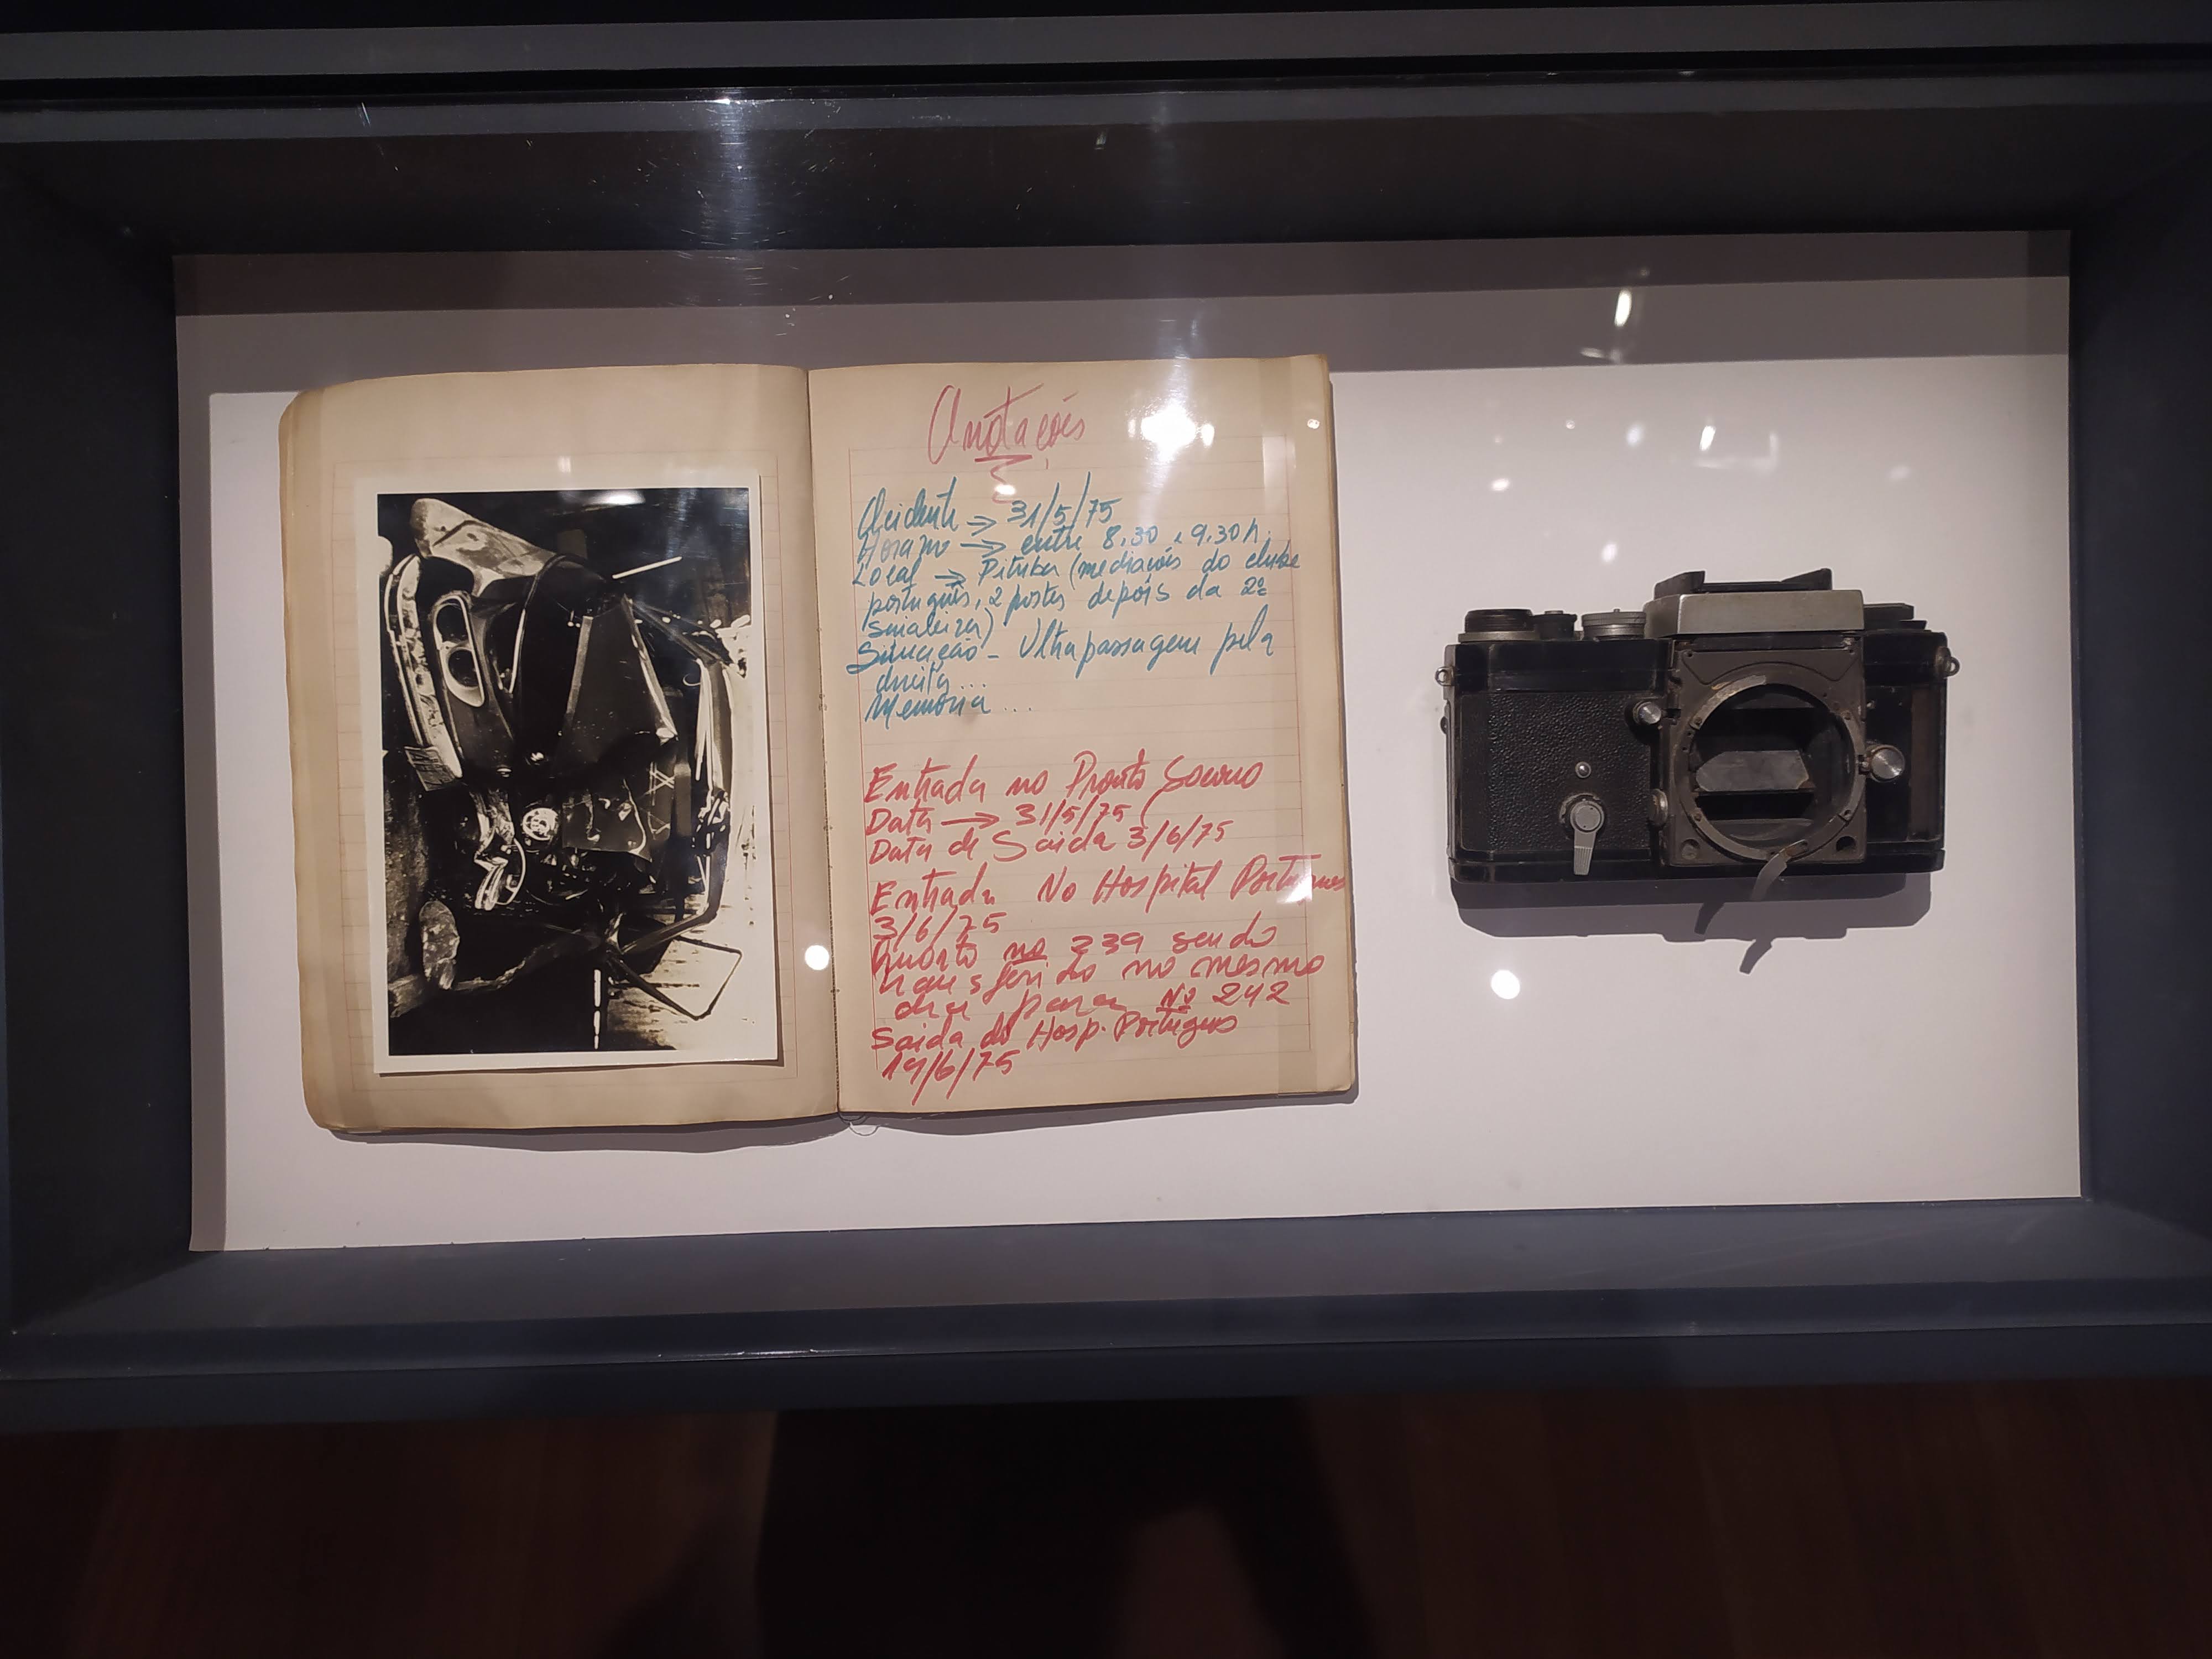 Anotações
Acidente → 31/5/75
Horario → entre 8.30 e 9.30h.
Local → Pituba (mediações do clube
português, 2 postes depois da 2ª
sinaleira)
Situação - Ultrapassagem pela
direita...
Memória...
Entrada no Pronto Socorro
Data → 31/5/75
Data de Saida 3/6/75
Entrada No Hospital Portugues
3/6/75
Quarto nº 339 sendo
transferido no mesmo
dia para Nº 242
Saida do Hosp. Portugues
19/6/75